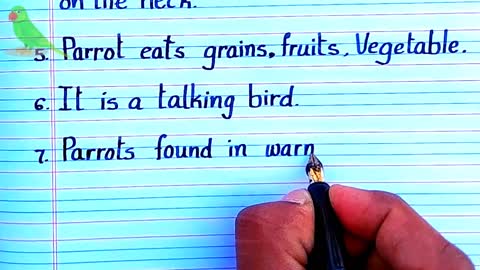 on the neck.
5. Parrot eats grains, fruits, Vegetable.
6. It is a talking bird.
7. Parrots found in warn